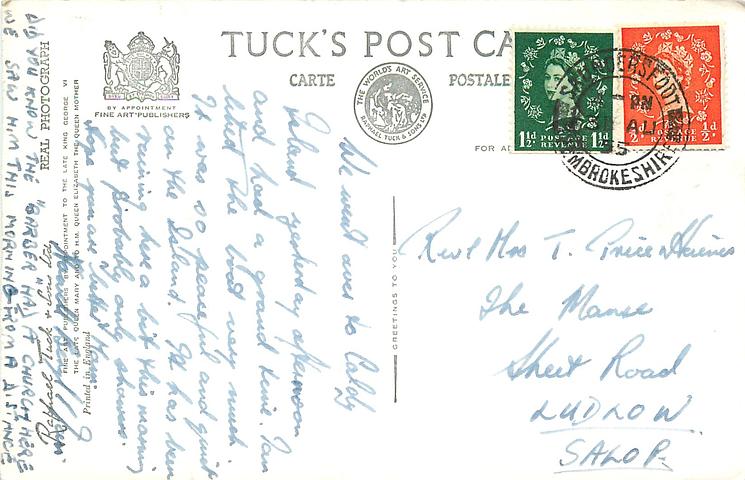 TUCK'S POST CA
CARTE POSTALE
THE WORLD'S ART SERVICE
RAPHAEL TUCK & SONS LTD
FOR AD
BY APPOINTMENT
FINE ART PUBLISHERS
REAL PHOTOGRAPH
FINE ART PUBLISHERS BY APPOINTMENT TO THE LATE KING GEORGE VI
THE LATE QUEEN MARY AND TO H.M. QUEEN ELIZABETH THE QUEEN MOTHER
Raphael Tuck & Sons Ltd
Printed in England
GREETINGS TO YOU
1½D POSTAGE REVENUE 1½D
½D POSTAGE REVENUE ½D
SAUNDERSFOOT
PM
AU
55
PEMBROKESHIRE
We went over to Caldy
Island yesterday afternoon
and had a grand time. Ian
liked the boat very much
It was so peaceful and quiet
on the Island. It has been
raining here a bit this morning
but probably only showers.
Hope you are better
DID YOU KNOW THE "BARBER" HAS A CHURCH HERE
WE SAW HIM THIS MORNING FROM A DISTANCE
Rev & Mrs T. Price Haines
The Manse
Sheet Road
LUDLOW
SALOP.